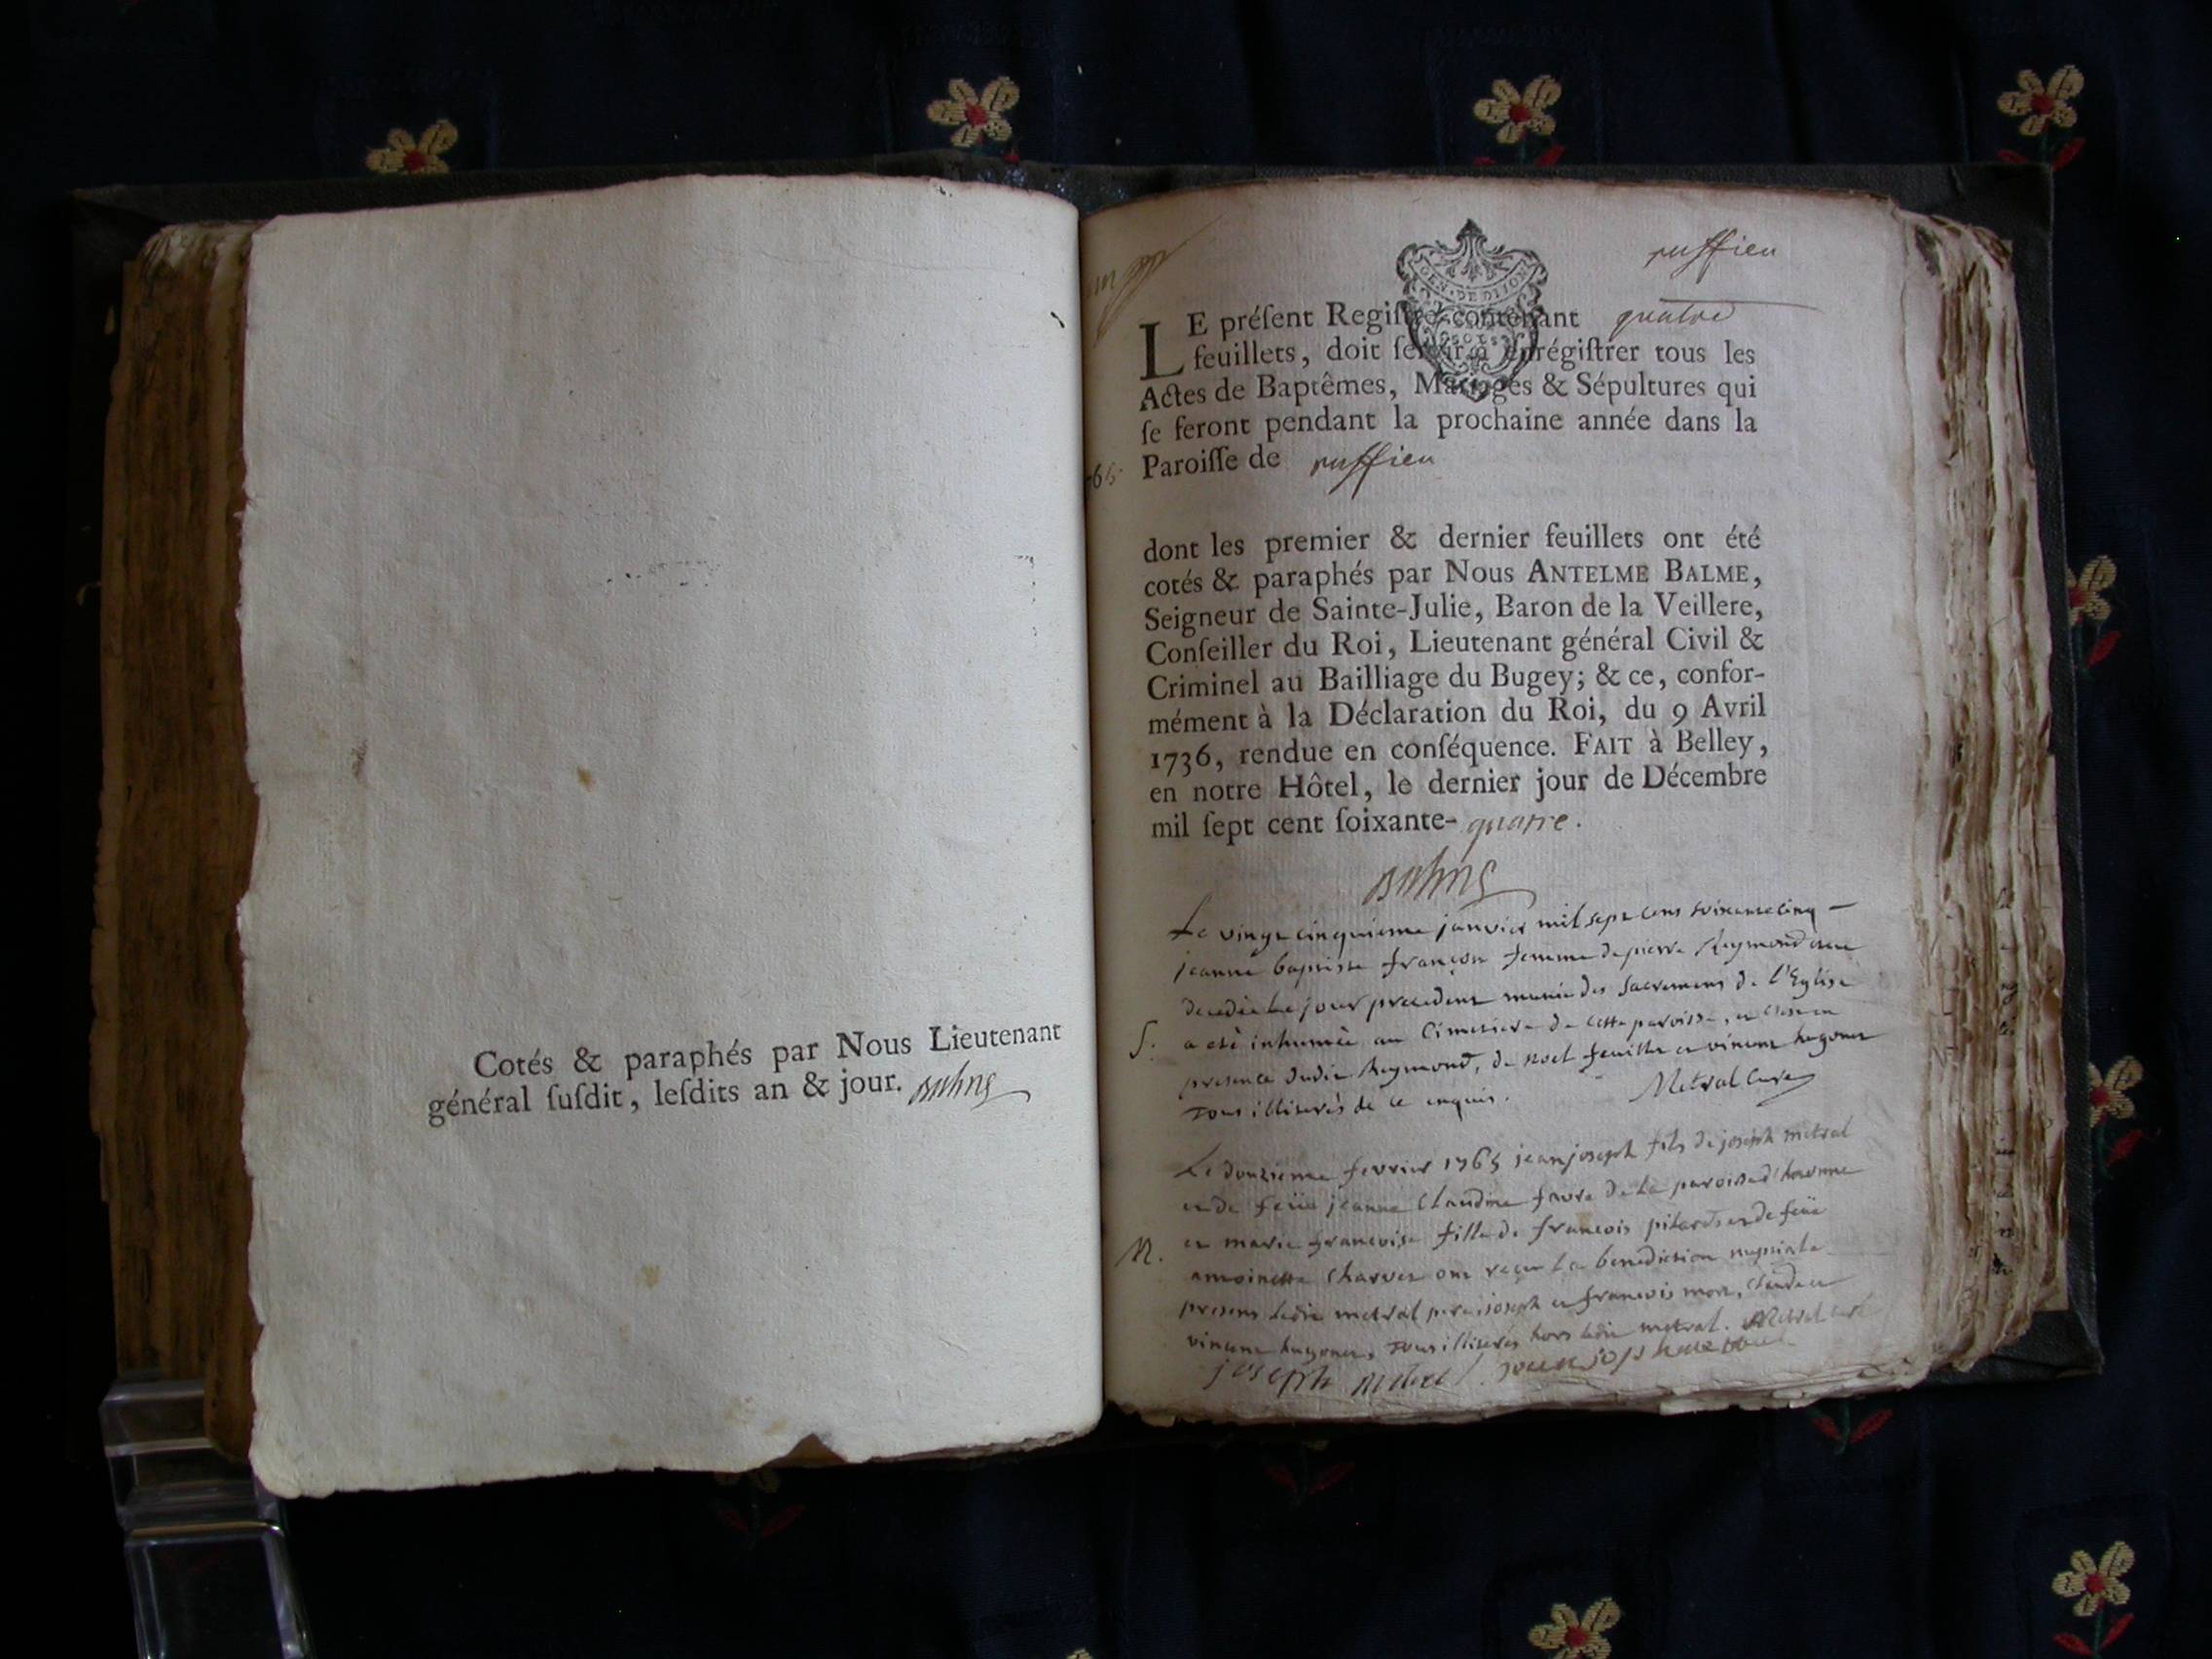 Cotés & paraphés par Nous Lieutenant
général ſuſdit, leſdits an & jour. Balme
ruffieu
GEN. DE DIJON
LE préſent Regiſtre contenant quatre
feuillets, doit ſervir à enrégiſtrer tous les
Actes de Baptêmes, Mariages & Sépultures qui
ſe feront pendant la prochaine année dans la
Paroiſſe de ruffieu
dont les premier & dernier feuillets ont été
cotés & paraphés par Nous ANTELME BALME,
Seigneur de Sainte-Julie, Baron de la Veillere,
Conſeiller du Roi, Lieutenant général Civil &
Criminel au Bailliage du Bugey; & ce, confor-
mément à la Déclaration du Roi, du 9 Avril
1736, rendue en conſéquence. FAIT à Belley,
en notre Hôtel, le dernier jour de Décembre
mil ſept cent ſoixante- quatre.
Balme
Le vingt cinquieme janvier mil sept cens soixante cinq
jeanne baptiste françon femme de pierre Reymond
decedée le jour precedent munie des sacremens de l'Eglise
S. a eté inhumée au Cimetiere de cette paroisse, en
presence dudit Reymond, de noel feuille et vincent hugonet
tous illiterés de ce enquis. Metral Curé
Le douzieme fevrier 1765 jean joseph fils de joseph metral
et de feüe jeanne Claudine favre de la paroisse d'hauonne
M. et marie françoise fille de françois pitard et de feüe
antoinette Charvet ont reçu la benediction nuptiale
presens ledit metral pere joseph et françois mon, claude et
vincent hugonet, tous illiterés hors ledit metral. Metral curé
joseph metral jean joseph metral